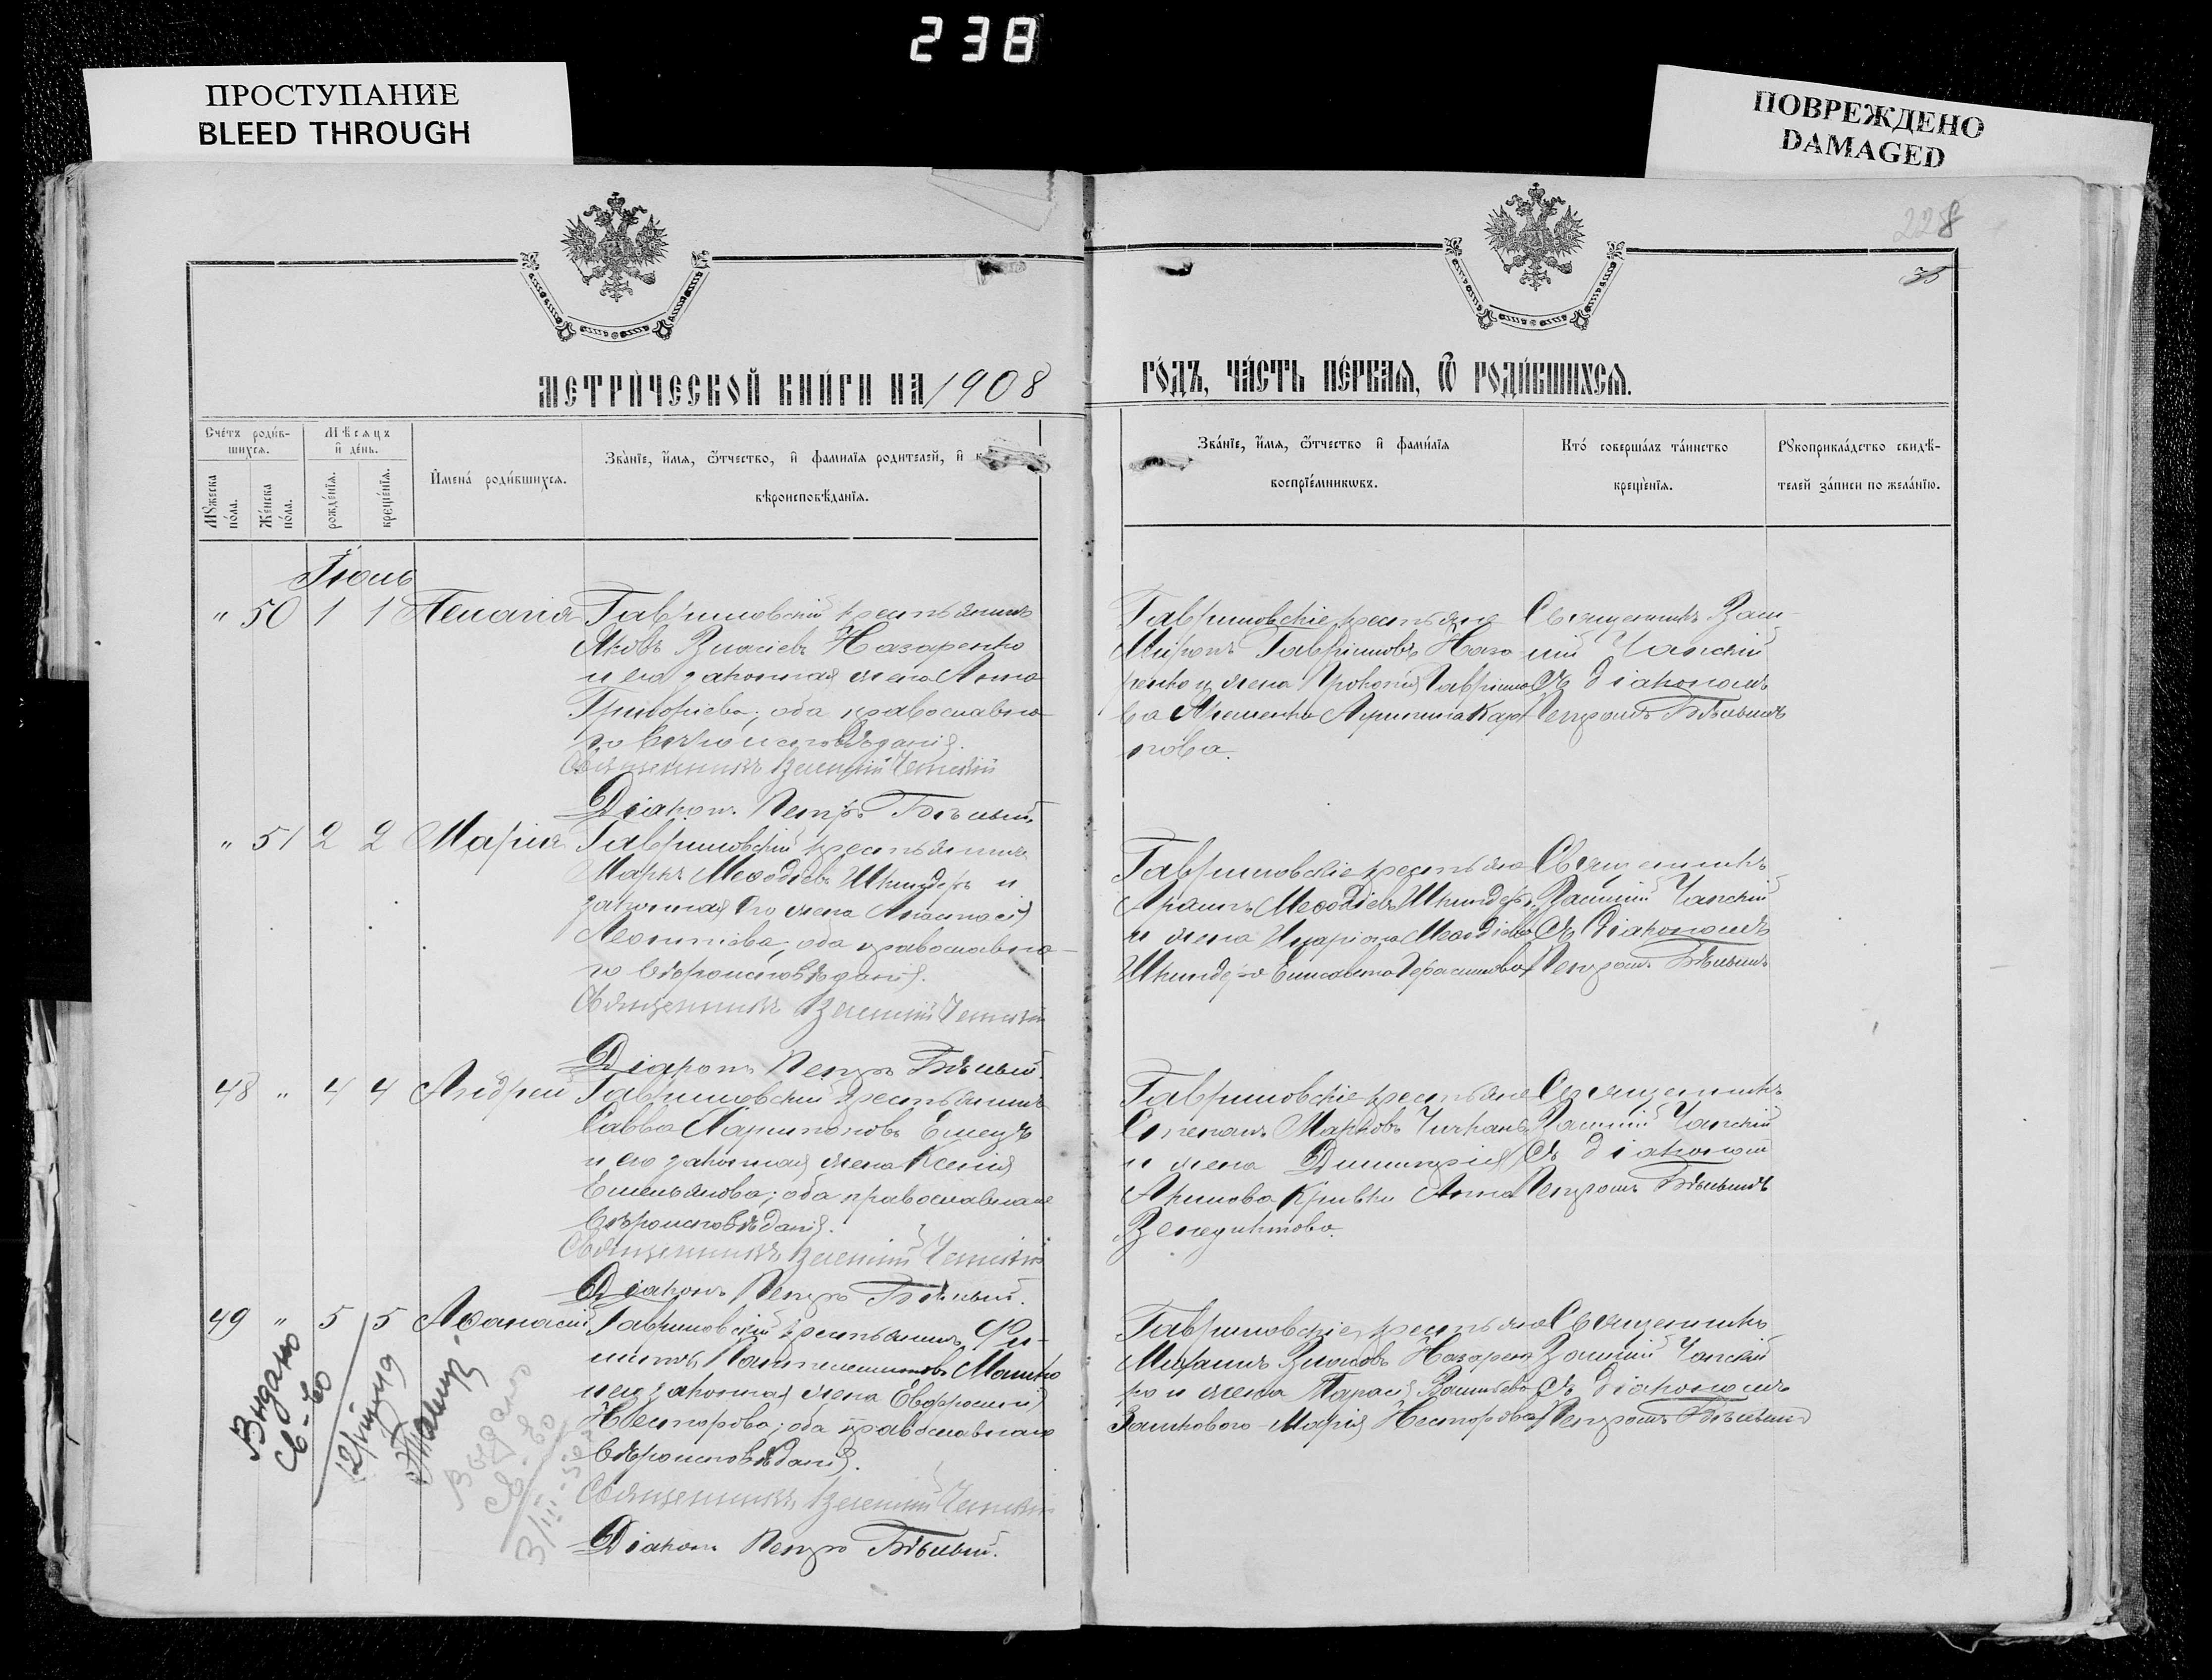 238
ПРОСТУПАНИЕ
BLEED THROUGH
ПОВРЕЖДЕНО
DAMAGED
228
35
МЕТРИ́ЧЕСКОЙ КНИ́ГИ НА 1908
ГО́ДЪ, ЧА́СТЬ ПЕ́РВАѦ, Ѿ РОДИ́ВШИХСѦ.
Сче́тъ роди́в-
шихсѧ.
Мѣсѧцъ
и҆ де́нь.
Мꙋ́жеска
по́ла.
Же́нска
по́ла.
рожде́нїѧ.
креще́нїѧ.
И҆мена́ роди́вшихсѧ.
Зва́нїе, и҆́мѧ, ѻ҆́тчество, и҆ фами́лїѧ родителей, и҆ к
вѣроисповѣ́данїѧ.
Зва́нїе, и҆́мѧ, ѻ҆́тчество и҆ фами́лїѧ
воспрїе́мникѡвъ.
Кто́ соверша́лъ та́инство
креще́нїѧ.
Рꙋкоприкла́дство свидѣ́-
телей за́писи по жела́нїю.
Іюль
" 50 1 1 Пелагія
Гавриловскій крестьянинъ
Яковъ Власіевъ Назаренко
и его законная жена Анна
Григоріева; оба православна-
го вѣроисповѣданія.
Священникъ
Діаконъ Петръ Бѣлый.
Гавриловскіе крестьяне
Миронъ Гавріиловъ Наза
ренко и жена Прокопія Гавріило
ва
пова.
Священникъ Васи-
лій Чапскій
съ діакономъ
Петромъ Бѣлымъ
" 51 2 2 Марія
Гавриловскій крестьянинъ
Маркъ Меѳодіевъ Шкиндеръ и
законная его жена Анастасія
Леонтіева; оба православна-
го вѣроисповѣданія.
Священникъ
Діаконъ Петръ Бѣлый.
Гавриловскіе крестьяне
Меѳодіевъ Шкиндеръ
и жена Иларіона Меѳодіева
Шкиндера Елисавета Герасимова
Священникъ
Василій Чапскій
съ діакономъ
Петромъ Бѣлымъ
48 " 4 4 Андрей
Гавриловскій крестьянинъ
Савва Харитоновъ Емецъ
и его законная жена Ксенія
Емельянова; оба православнаго
вѣроисповѣданія.
Священникъ
Діаконъ Петръ Бѣлый.
Гавриловскіе крестьяне
Степанъ Марковъ
и жена Димитрія
Акимова Кривки Анна
Венедиктова.
Священникъ
Василій Чапскій
съ діакономъ
Петромъ Бѣлымъ
49 " 5 5 Аѳанасій
Гавриловскій крестьянинъ Фи-
липпъ Пантелеимоновъ Машко
и его законная жена Евфросинія
Несторова; оба православнаго
вѣроисповѣданія.
Священникъ
Діаконъ Петръ Бѣлый.
Гавриловскіе крестьяне
Михаилъ Власовъ Назарен
ко и жена Тарасія Васильева
Марія Несторова
Священникъ
Василій Чапскій
съ діакономъ
Петромъ Бѣлымъ
Видано
св-во
Выдано
св-во